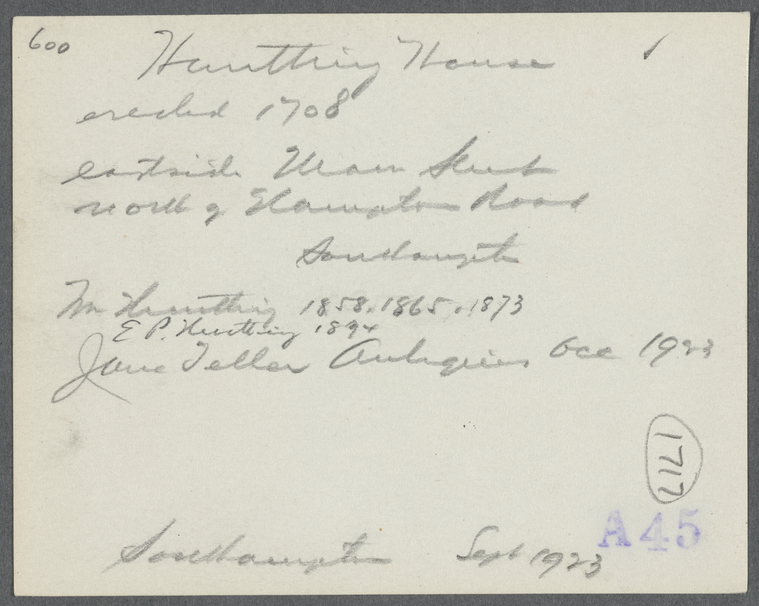 600 Huntting House 1
erected 1708
eastside Main Street
north of Hampton Road
Southampton
Wm Huntting 1858, 1865, 1873
E P. Huntting 1894
Jane Teller Antiques Occ 1923
1717
A45
Southampton Sept 1923